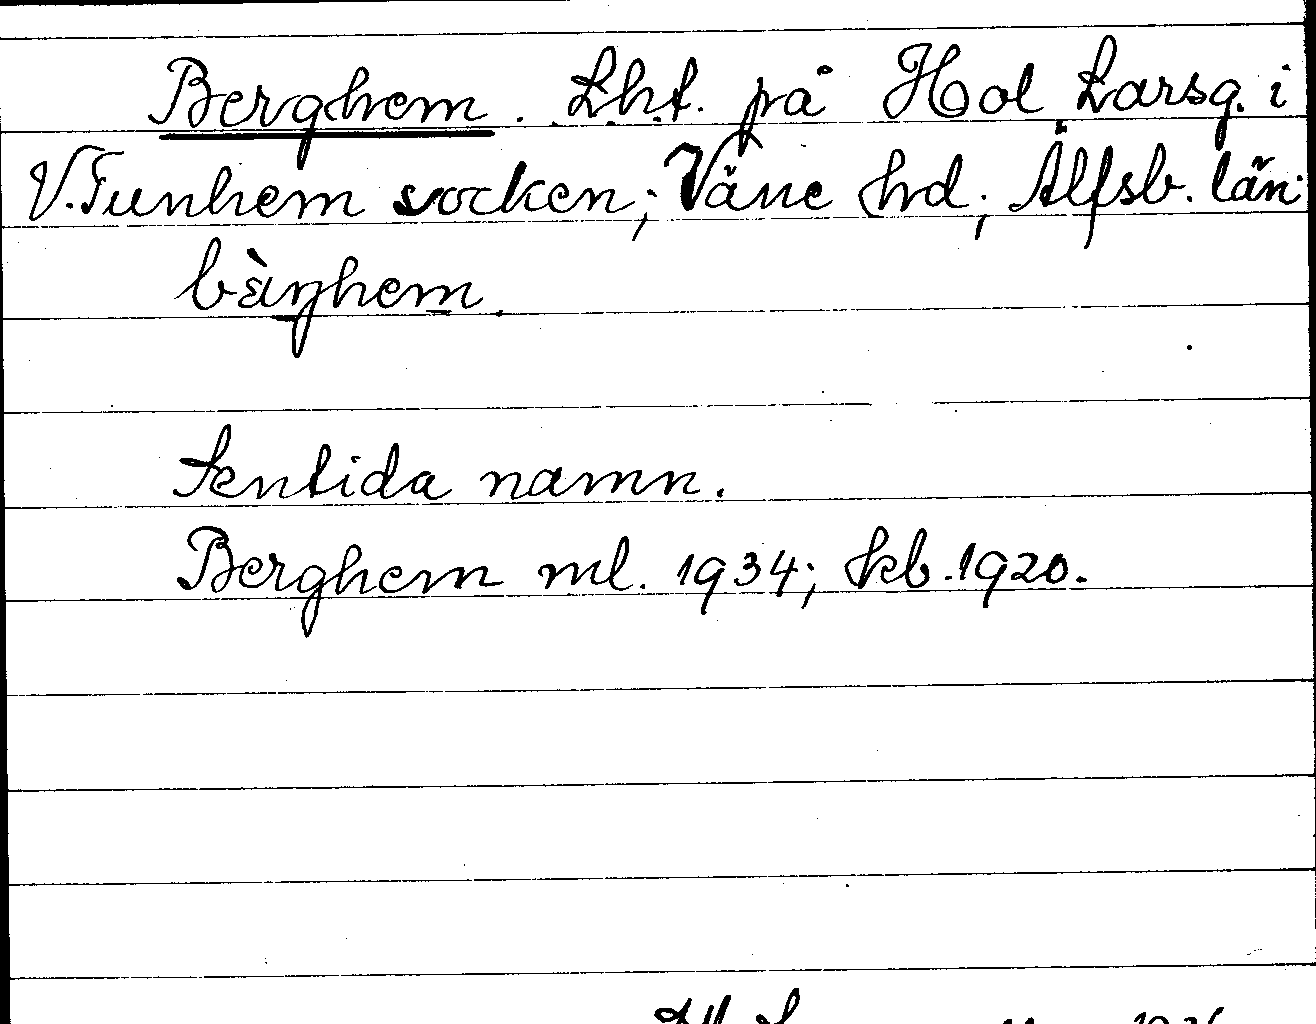 Berghem. Lht. på Hol Larsg. i
V. Tunhem socken; Väne hd; Älfsb. län.
bàŋhem.
Sentida namn.
Berghem ml. 1934; kb. 1920.